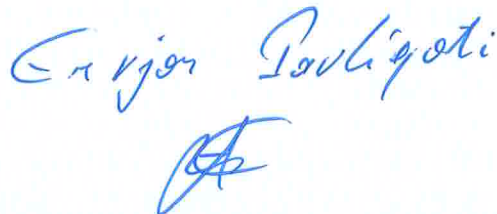 Ervjon Pavliqoti